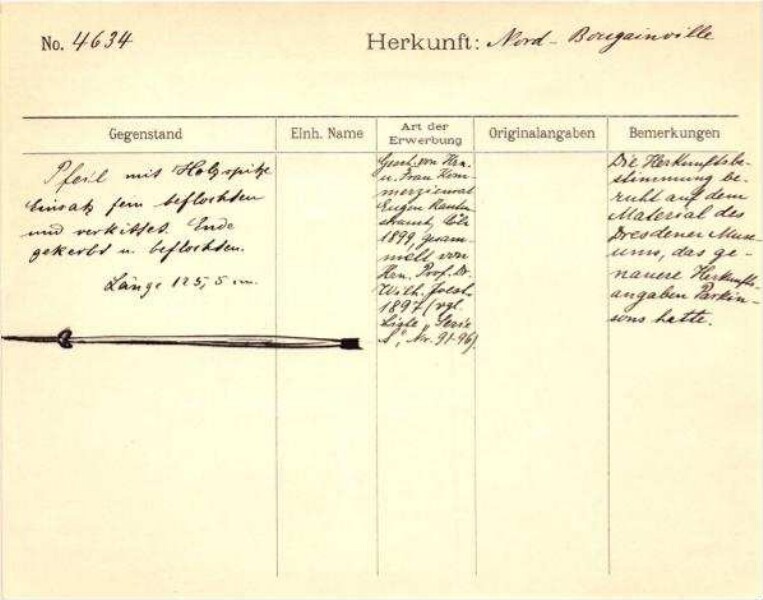 No. 4634
Herkunft: Nord-Bougainville
Gegenstand
Einh. Name
Art der Erwerbung
Originalangaben
Bemerkungen
Pfeil mit Holzspitze
Einsatz fein beflochten
und verkittet. Ende
gekerbt u. beflochten.
Länge 125,5 cm.
Gesch. von Hrn.
u. Frau Kom-
merzienrat
Eugen Rauten-
strauch, Cöln
1899, gesam-
melt von
Hrn. Prof. Dr.
Wilh. Joest
1897 (vgl.
Liste „Serie
S", Nr. 91-96).
Die Herkunftsbe-
stimmung be-
ruht auf dem
Material des
Dresdener Muse-
ums, das ge-
nauere Herkunfts-
angaben Parkin-
sons hatte.